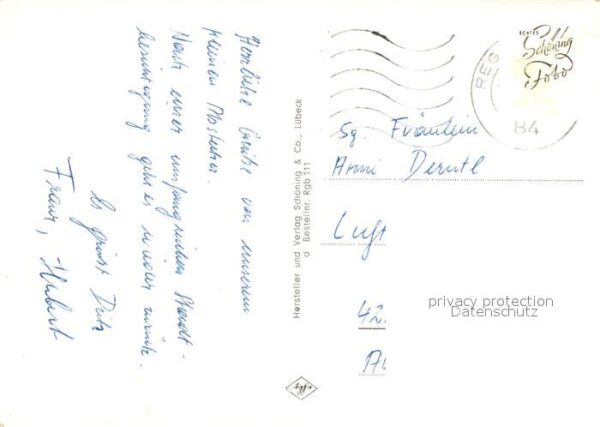 Herzliche Grüße von unserem
kleinen Abstecher.
Nach einer umfangreichen Stadt-
besichtigung geht es wieder zurück.
Es grüßt Dich
Franz, Hubert
Hersteller und Verlag Schöning & Co., Lübeck
d Bestellnr. Rgb 111
Agfa
REG
84
ECHTES
Schöning
Foto
Sg. Fräulein
Anni Derntl
Luft
42
privacy protection
Datenschutz